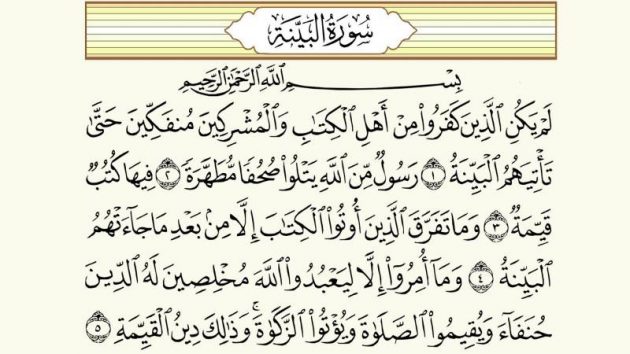 سُورَةُ الْبَيِّنَةِ
بِسْمِ اللَّهِ الرَّحْمَٰنِ الرَّحِيمِ
لَمْ يَكُنِ الَّذِينَ كَفَرُوا۟ مِنْ أَهْلِ الْكِتَابِ وَالْمُشْرِكِينَ مُنفَكِّينَ حَتَّىٰ
تَأْتِيَهُمُ الْبَيِّنَةُ ١ رَسُولٌ مِّنَ اللَّهِ يَتْلُوا۟ صُحُفًا مُّطَهَّرَةً ٢ فِيهَا كُتُبٌ
قَيِّمَةٌ ٣ وَمَا تَفَرَّقَ الَّذِينَ أُوتُوا۟ الْكِتَابَ إِلَّا مِنۢ بَعْدِ مَا جَآءَتْهُمُ
الْبَيِّنَةُ ٤ وَمَآ أُمِرُوٓا۟ إِلَّا لِيَعْبُدُوا۟ اللَّهَ مُخْلِصِينَ لَهُ الدِّينَ
حُنَفَآءَ وَيُقِيمُوا۟ الصَّلَوٰةَ وَيُؤْتُوا۟ الزَّكَوٰةَ ۚ وَذَٰلِكَ دِينُ الْقَيِّمَةِ ٥